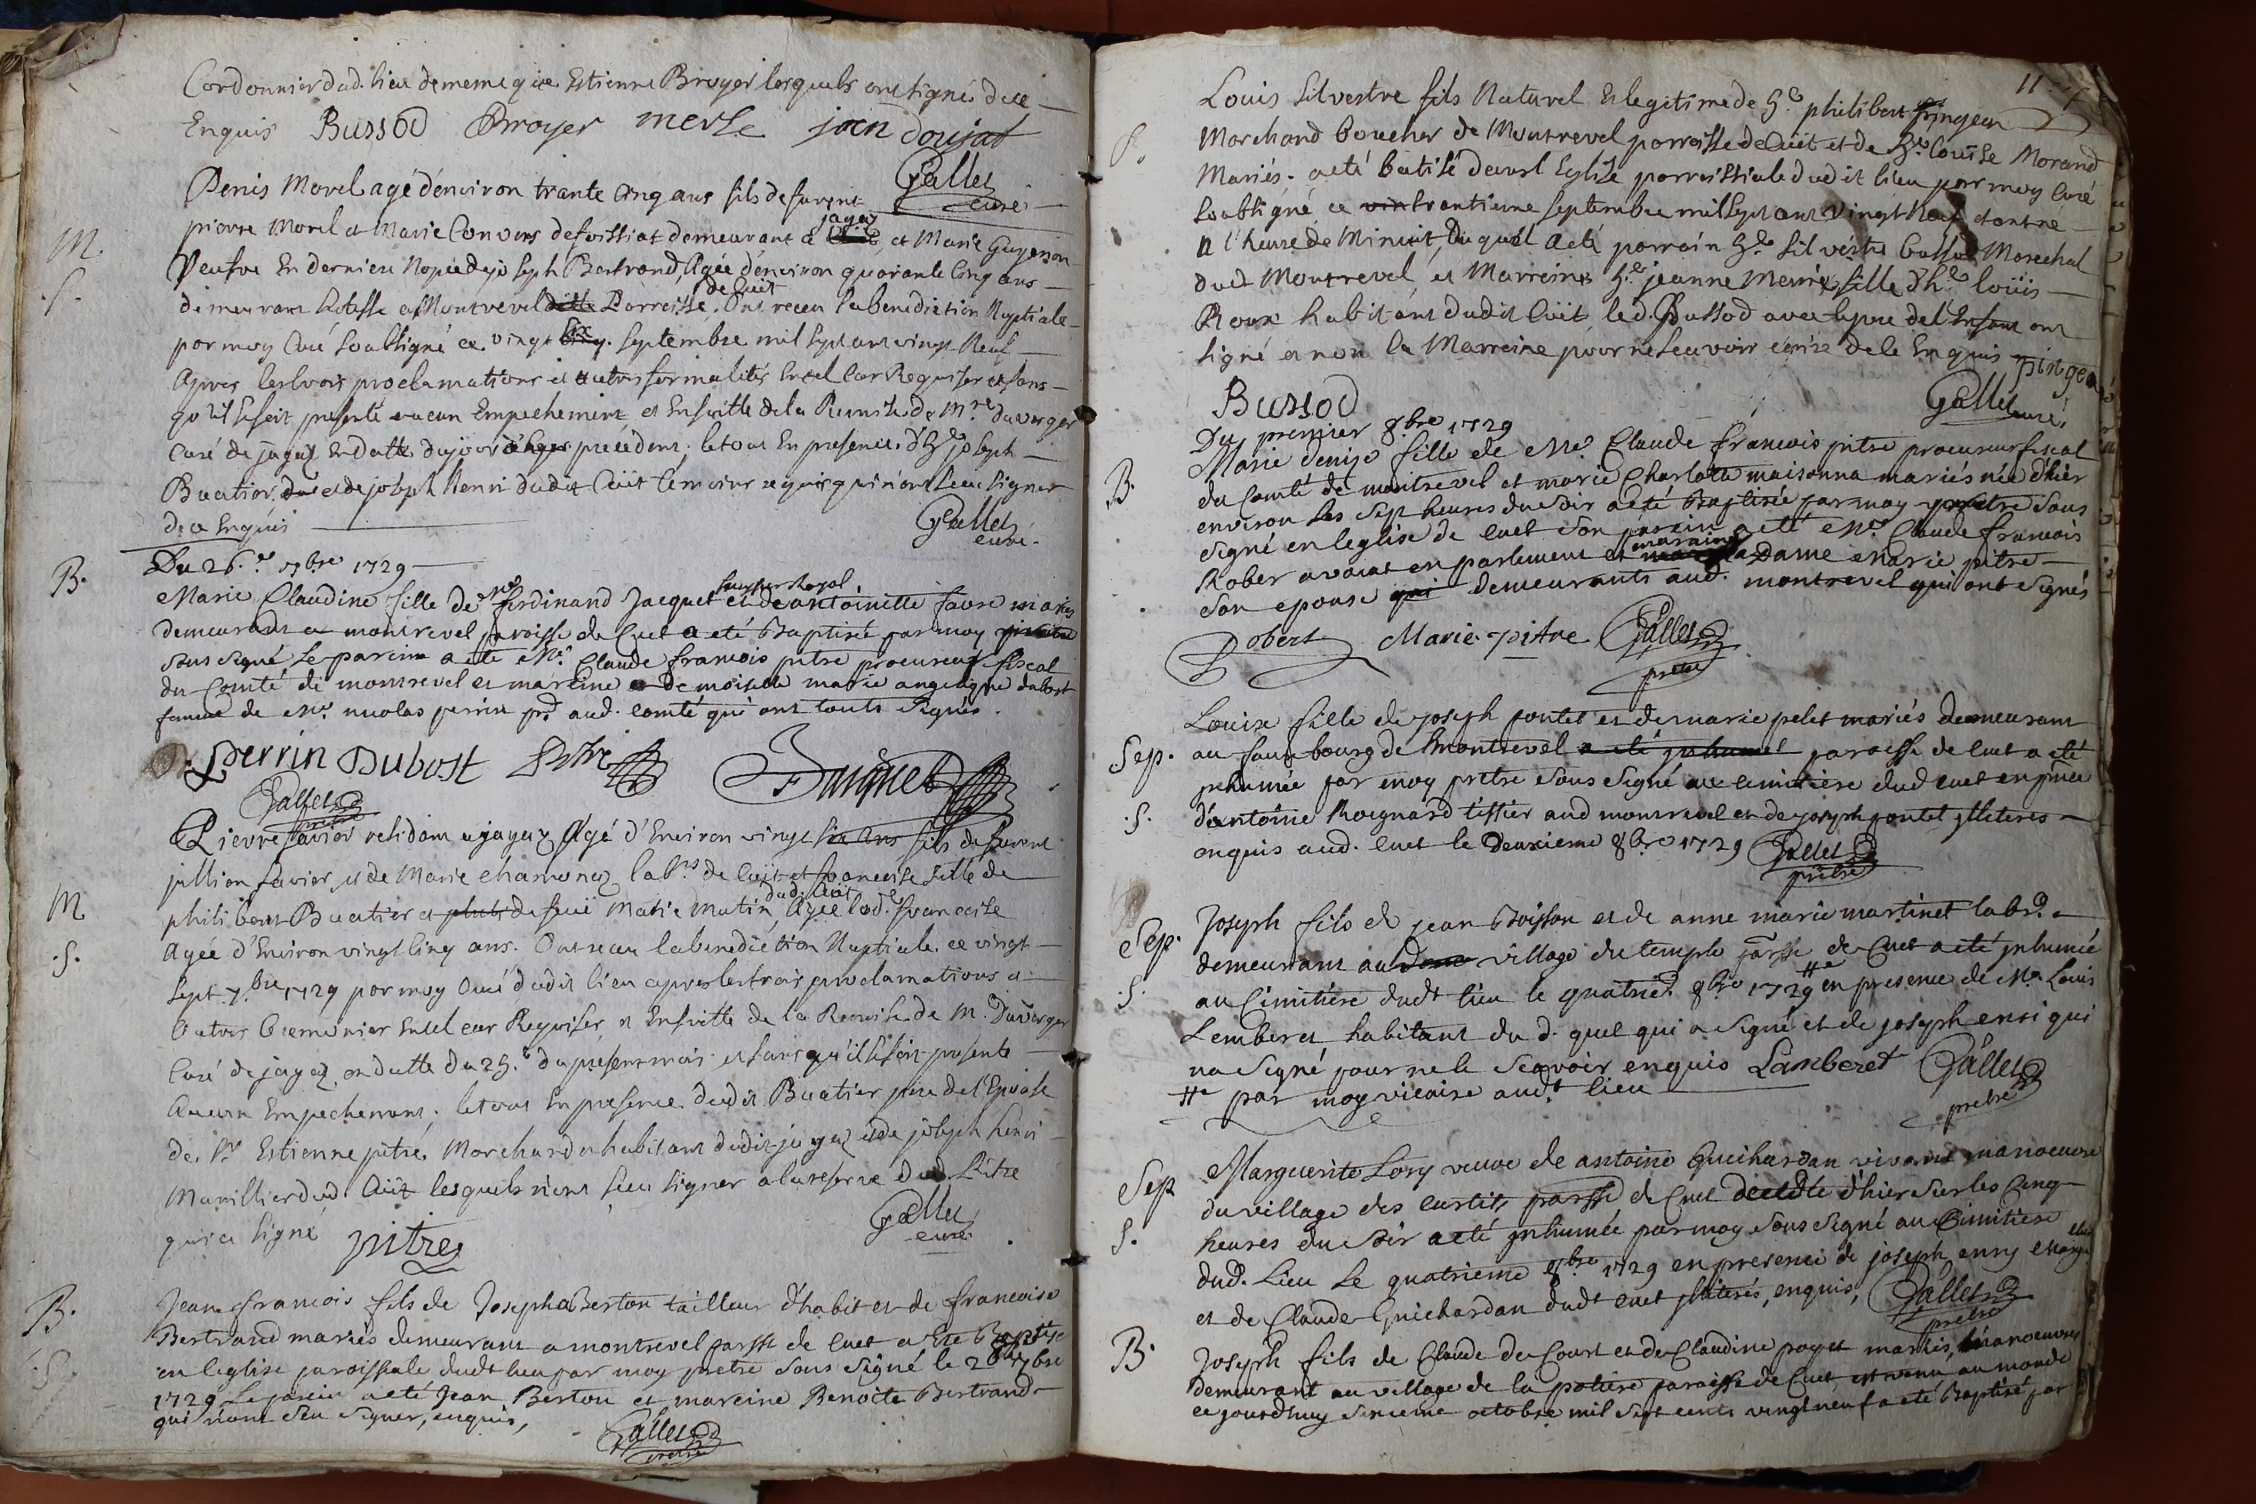 Cordonnier dud. lieu de meme que Estienne Broyer lesquels ont signés de ce
Enquis Bussod Broyer merle jean doujat
Gallet
curé
Denis Morel agé d'environ trante cinq ans fils de feu
pierre Morel et Marie Convers de foissiat demeurant a jayaz et Marie Guyenon
M.
Veufve En derniere Nopce de joseph Bertrand, Agée d'environ quarante cinq ans
.S.
demeurant a Montrevel Parroisse de Cuët. Ont receu la benediction Nuptiale
par moy Curé soubsigné ce vingt six septembre mil sept cent vingt Neuf
apres les trois proclamations et autres formalités En tel cas Requises et sans
qu'il se soit presenté aucun Empechement et Ensuitte de la Remise de Mre duverger
Curé de jayaz En datte du jour d'hyer precedent, le tout En presence d'h. joseph
Buatier et de joseph Henri dudit Cuët temoins requis qui n'ont sceu signer
de ce Enquis
Gallet
curé.
Du 26.e 7bre 1729
B.
Marie Claudine fille de Me ferdinand Jacquet huyssier Royal et de antoinette favre mariés
demeurant a montrevel paroisse de Cuet a eté Baptisée par moy
sous signé, Le parein a eté Me. Claude francois pitre procureur fiscal
du Comté de montrevel et mareine demoiselle marie dubost
femme de Me. nicolas perrin aud. Comté qui ont touts signés.
Perrin Dubost Pitre
Gallet
pretre
Pierre favier residant a jayaz Agé d'Environ vingt six ans fils de
jullien favier et de Marie chamonaz lab.rs de Cuët et francoise fille de
M
philibert Buatier et de feuë Marie Mutin dud. Cuët, Agée lad. francoise
.S.
Agée d'Environ vingt cinq ans. Ont receu la benediction Nuptiale ce vingt
sept 7.bre 1729 par moy Curé dudit lieu apres les trois proclamations et
autres Ceremonies En tel cas Requises et Ensuitte de la Remise de M. Duverger
Curé de jayaz, en datte du 25.e du present mois et sans qu'il se soit presenté
Aucun Empechement; le tout En presence dudit Buatier pere de l'Epouse
de Sr Estienne pitre, Marchand et habitant dudit jayaz et de joseph henri
Marillier dud. Cuët lesquels n'ont sceu signer a la reserve dud. Pitre
qui a signé pitre
Gallet
curé
B.
Jean francois fils de Joseph Berton tailleur d'habit et de francoise
Bertrand mariés demeurant a montrevel parsse de Cuet a eté Baptisé
.S.
en l'eglise paroissiale dudt lieu par moy pretre sous signé le 28 7bre
1729 Le parein a eté Jean Berton et mareine Benoite Bertrand
qui n'ont sceu signer, enquis,
Gallet
pretre
11
Louis Silvestre fils Naturel Et legitime de h.e philibert pingeon
Marchand boucher de Montrevel parroisse de Cuët et de h.e Louïse Morand
Mariés. a eté batisé devant l'Eglise parroissiale dudit lieu par moy Curé
soubsigné, ce trantieme septembre mil sept cent vingt Neuf
a l'heure de Minuit, Duquel a eté parrain h.e silvestre bussod Marechal
dud Montrevel, et Marreine h.e jeanne Marie fille d'h.e loüis
Roux habitant dudit Cuët, led. Bussod avec le pere de l'Enfant ont
signé et non la Marreine pour ne sçavoir ecrire de ce Enquis pingeon
Bussod
Gallet curé.
Du premier 8.bre 1729
B.
Marie denise fille de Me. Claude francois pitre procureur fiscal
du Comté de montrevel et marie Charlotte maisonna mariés née d'hier
environ les sept heures du soir a eté Baptisée par moy pretre sous
signé en leglise de Cuet son parein a eté Me Claude francois
Rober avocat en parlement et maraine Dame Marie pitre
son epouse demeurants aud. montrevel qui ont signés
Robert Marie pitre Gallet
pretre
Louise fille de joseph pontet et de marie pelet mariés demeurant
Sep.
au fauxbourg de montrevel a eté inhumé paroisse de Cuet a eté
inhumée par moy pretre sous signé au cimitiere dud Cuet en pnce
.S.
d'antoine Roignard tissier aud montrevel et de joseph pontet illiteres
enquis aud. Cuet le Deuxieme 8bre 1729 Gallet
pretre
Joseph fils de jean Boisson et de anne marie martinet labrs
Sep.
demeurant au village du temple parsse de Cuet a eté inhumée
.S.
au Cimitiere dudt lieu le quatrie 8bre 1729 en presence de Mre Louis
Lemberet habitant du d. quet qui a signé et de joseph enri qui
na signé pour ne le scavoir enquis Lamberet Gallet
pretre
par moy vicaire audt lieu
Sep
Marguerite Lory veuve de antoine Guichardan vivant manoeuvre
du village des curtits parsse de Cuet decedée d'hier sur les Cinq
S.
heures du soir a eté inhumée par moy sous signé au Cimitiere
dud. Lieu Le quatrieme 8bre 1729 en presence de joseph enry
et de Claude Guichardan dudt Cuet illiterés, enquis, Gallet
pretre
B.
Joseph fils de Claude de Court et de Claudine poyet mariés, manoeuvres
demeurant au village de la potiere paroisse de Cuet, est venu au monde
ce jourdhuy sixieme octobre mil sept cents vingt neuf a eté Baptisé par